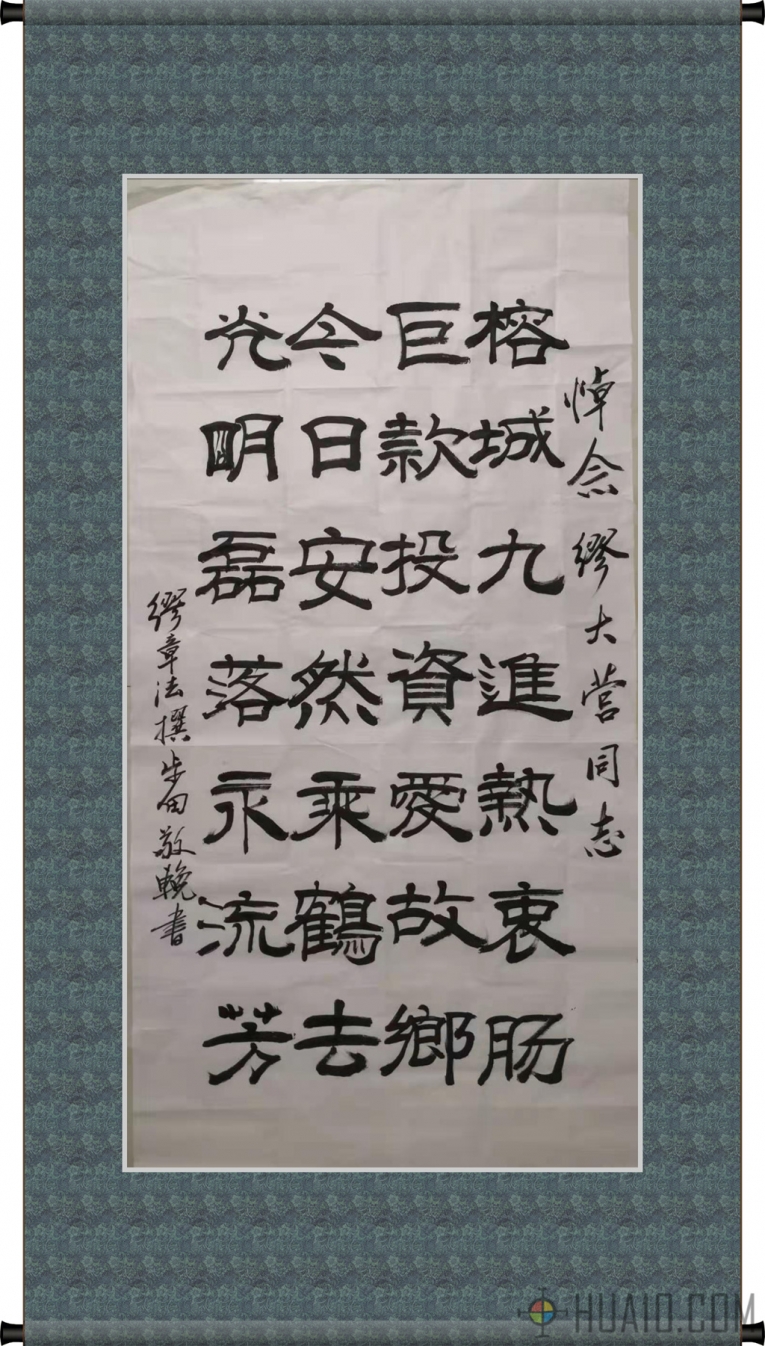 悼念缪大营同志
榕城九進熱衷肠
巨款投資愛故鄉
今日安然乘鶴去
光明磊落永流芳
缪章法撰步田敬輓書
HUAIO.COM